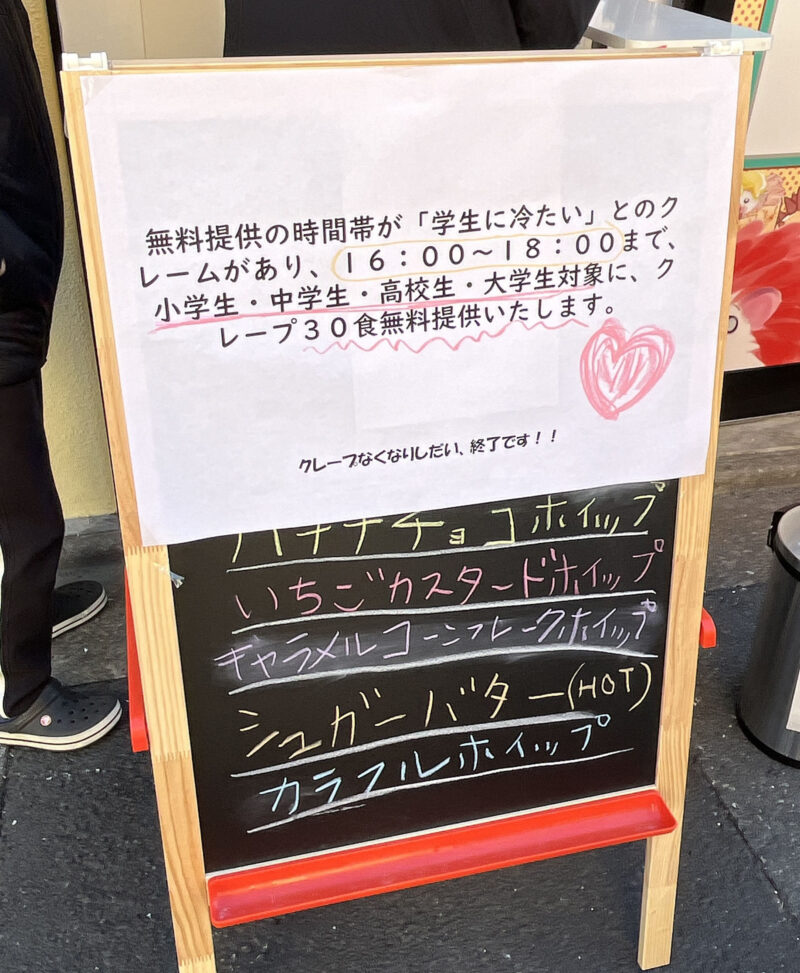 無料提供の時間帯が「学生に冷たい」とのク
レームがあり、１６：００～１８：００まで、
小学生・中学生・高校生・大学生対象に、ク
レープ３０食無料提供いたします。
クレープなくなりしだい、終了です！！
バナナチョコホイップ
いちごカスタードホイップ
キャラメルコーンフレークホイップ
シュガーバター(HOT)
カラフルホイップ